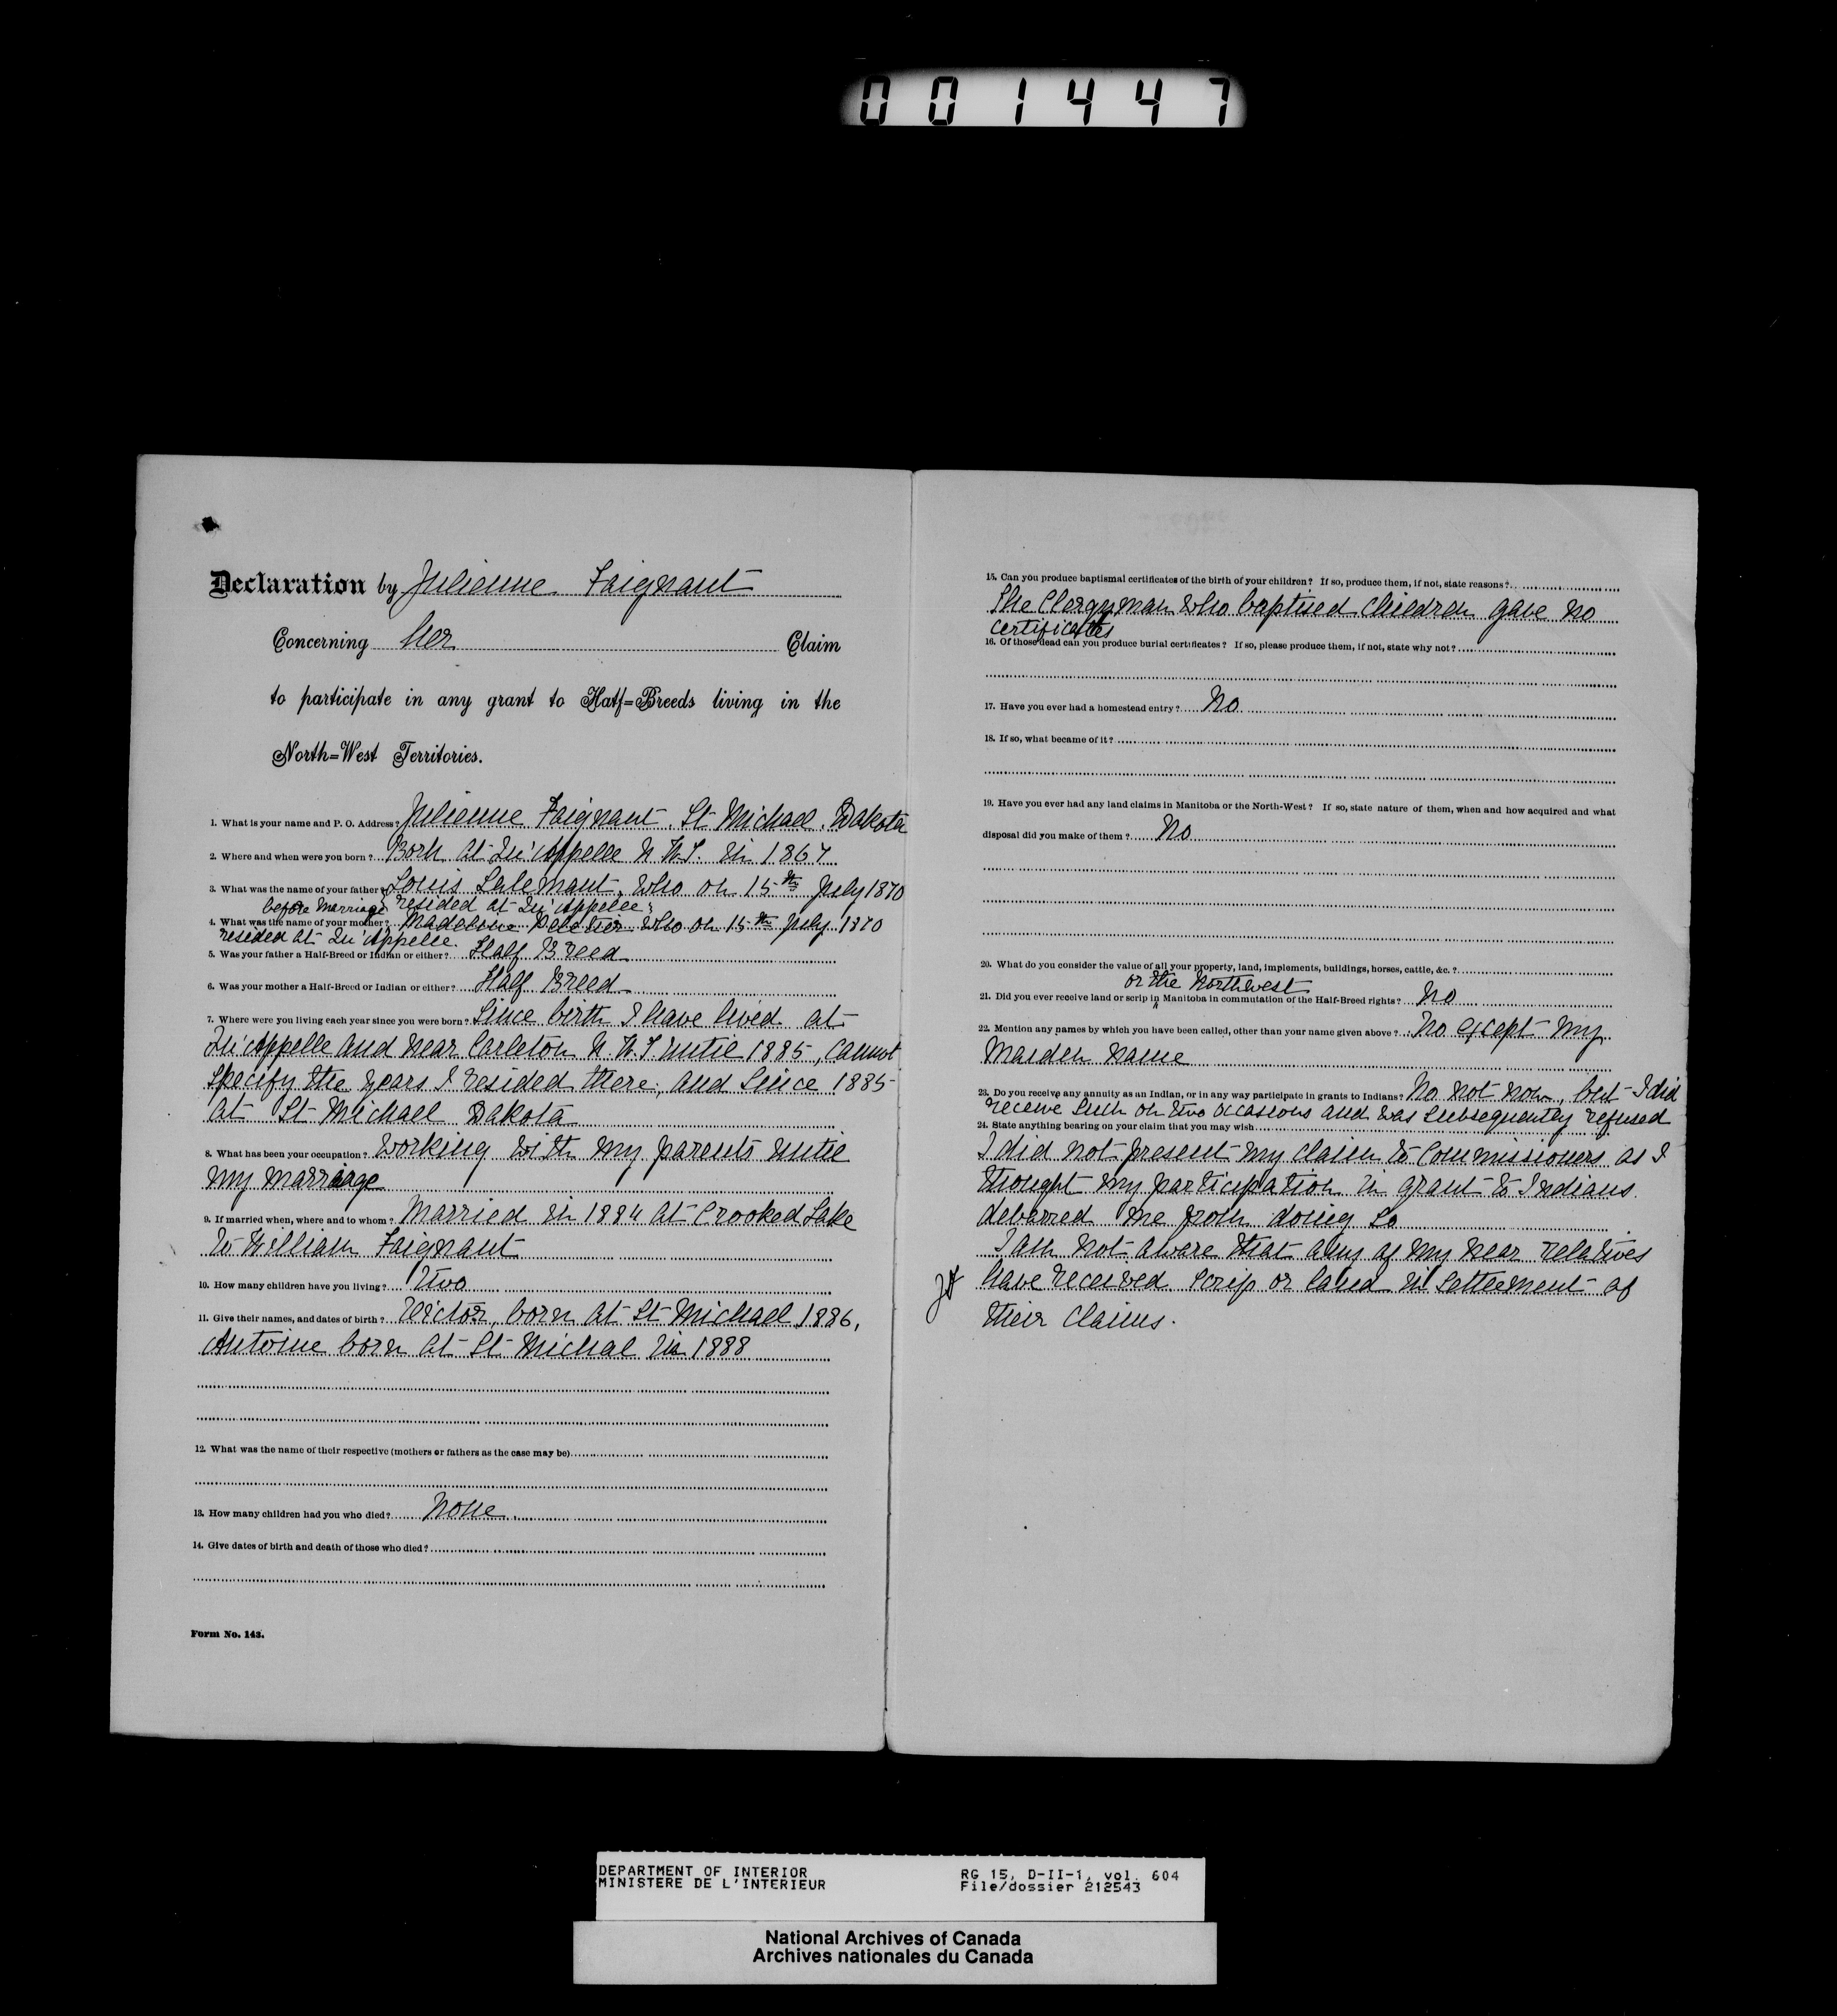 001447
Declaration by Julienne Faignant
Concerning her Claim
to participate in any grant to Half-Breeds living in the
North-West Territories.
1. What is your name and P. O. Address? Julienne Faignant. St Michael. Dakota
2. Where and when were you born? Born at Qu'Appelle N.W.T. in 1867
3. What was the name of your father? Louis Lalemant, who on 15th July 1870
before marriage resided at Qu'Appelle.
4. What was the name of your mother? Madeleine Peletier who on 15th July 1870
resided at Qu'Appelle.
5. Was your father a Half-Breed or Indian or either? Half Breed
6. Was your mother a Half-Breed or Indian or either? Half Breed
7. Where were you living each year since you were born? Since birth I have lived at
Qu'Appelle and near Carleton N.W.T. until 1885, cannot
specify the years I resided there, and since 1885
at St Michael Dakota
8. What has been your occupation? Working with my parents until
my marriage
9. If married when, where and to whom? Married in 1884 at Crooked Lake
to William Faignant
10. How many children have you living? Two
11. Give their names, and dates of birth? Victor, born at St Michael 1886,
Antoine born at St Michal in 1888
12. What was the name of their respective (mothers or fathers as the case may be)
13. How many children had you who died? None.
14. Give dates of birth and death of those who died?
Form No. 143.
15. Can you produce baptismal certificates of the birth of your children? If so, produce them, if not, state reasons?
The Clergyman who baptised children gave no
certificates
16. Of those dead can you produce burial certificates? If so, please produce them, if not, state why not?
17. Have you ever had a homestead entry? No
18. If so, what became of it?
19. Have you ever had any land claims in Manitoba or the North-West? If so, state nature of them, when and how acquired and what
disposal did you make of them? No
20. What do you consider the value of all your property, land, implements, buildings, horses, cattle, &c.?
or the Northwest
21. Did you ever receive land or scrip in Manitoba in commutation of the Half-Breed rights? No
22. Mention any names by which you have been called, other than your name given above? No except my
maiden name
23. Do you receive any annuity as an Indian, or in any way participate in grants to Indians? No not now, but I did
receive such on two occasions and was subsequently refused
24. State anything bearing on your claim that you may wish
I did not present my claim to Commissioners as I
thought my participation in grant to Indians
debarred me from doing so
I am not aware that any of my near relatives
have received scrip or land in settlement of
their claims.
DEPARTMENT OF INTERIOR
MINISTERE DE L'INTERIEUR
RG 15, D-II-1, vol. 604
File/dossier 212543
National Archives of Canada
Archives nationales du Canada